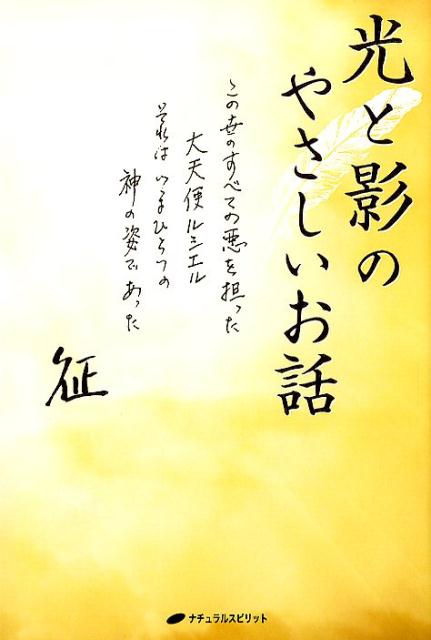 光と影の
やさしいお話
この世のすべての悪を担った
大天使ルシエル
それは いまひとつの
神の姿であった
征
ナチュラルスピリット